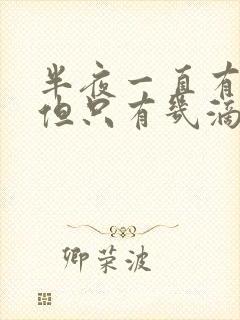 半夜一直有
但只有几滴
卿荣波